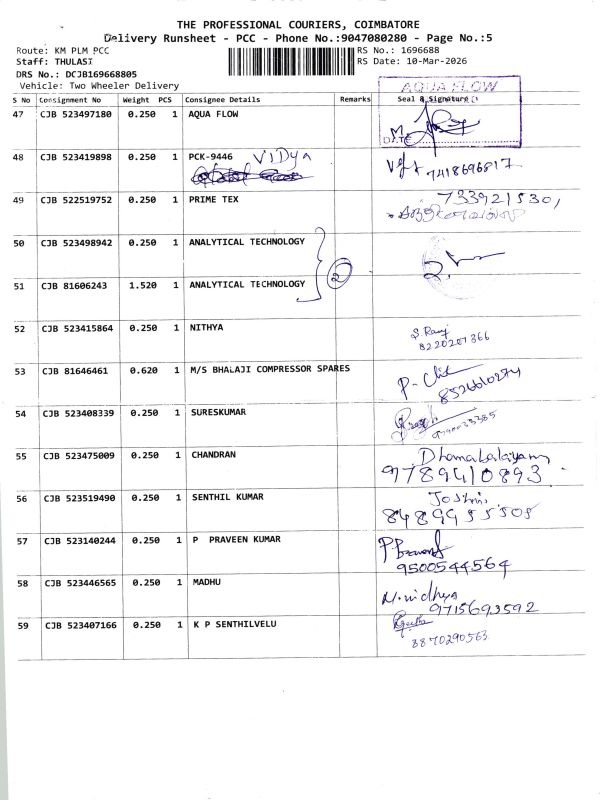 THE PROFESSIONAL COURIERS, COIMBATORE
Delivery Runsheet - PCC - Phone No.:9047080280 - Page No.:5
Route: KM PLM PCC
RS No.: 1696688
Staff: THULASI
RS Date: 10-Mar-2026
DRS No.: DCJB169668805
Vehicle: Two Wheeler Delivery
AQUA FLOW
S No Consignment No Weight PCS Consignee Details Remarks Seal & Signature
47 CJB 523497180 0.250 1 AQUA FLOW
DATE
48 CJB 523419898 0.250 1 PCK-9446 VIDYA
7418696817
49 CJB 522519752 0.250 1 PRIME TEX
50 CJB 523498942 0.250 1 ANALYTICAL TECHNOLOGY
2
51 CJB 81606243 1.520 1 ANALYTICAL TECHNOLOGY
52 CJB 523415864 0.250 1 NITHYA S. Ranj
8220207366
53 CJB 81646461 0.620 1 M/S BHALAJI COMPRESSOR SPARES
8526610274
54 CJB 523408339 0.250 1 SURESKUMAR
55 CJB 523475009 0.250 1 CHANDRAN
9789410893
56 CJB 523519490 0.250 1 SENTHIL KUMAR
8489955505
57 CJB 523140244 0.250 1 P PRAVEEN KUMAR
9500544564
58 CJB 523446565 0.250 1 MADHU
9715693592
59 CJB 523407166 0.250 1 K P SENTHILVELU
8870290563